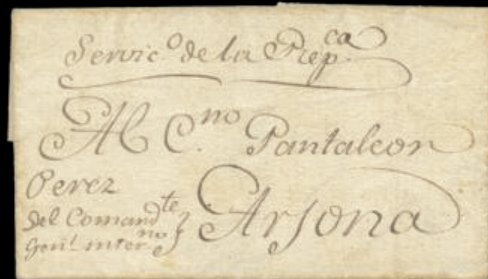 Servic.º de la Rep.ca
Al C.no Pantaleon
Perez
del Comand.te
Gen.l inter.no
Arjona